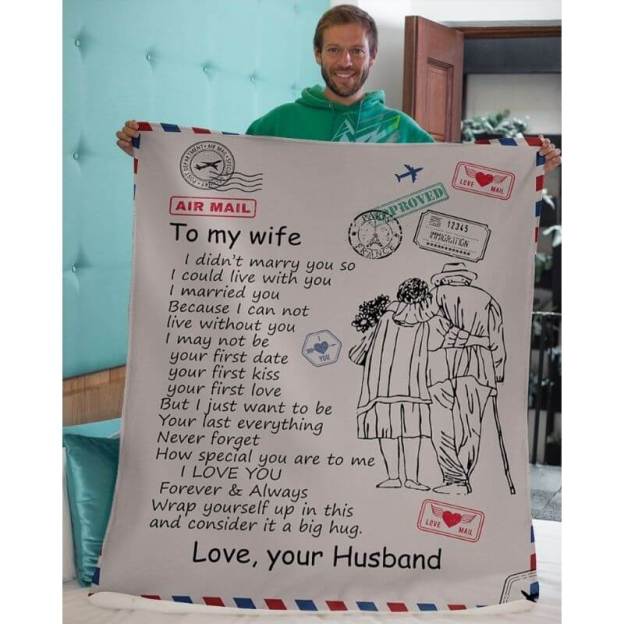 AIR MAIL
To my wife
I didn't marry you so
I could live with you
I married you
Because I can not
live without you
I may not be
your first date
your first kiss
your first love
But I just want to be
Your last everything
Never forget
How special you are to me
I LOVE YOU
Forever & Always
Wrap yourself up in this
and consider it a big hug.
Love, your Husband
APPROVED
LOVE MAIL
PARIS
FRANCE
12345
IMMIGRATION
I
YOU
LOVE MAIL